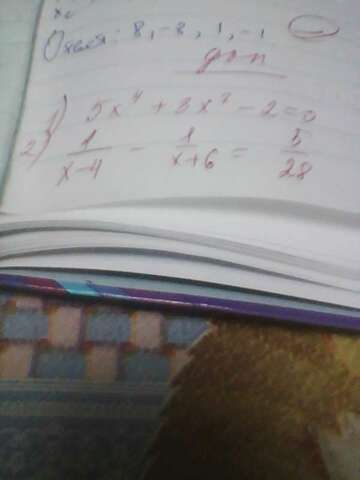 Ответ: 8, -8, 1, -1
доп
1) 5x⁴ + 3x² - 2 = 0
2) 1/(x-4) - 1/(x+6) = 5/28